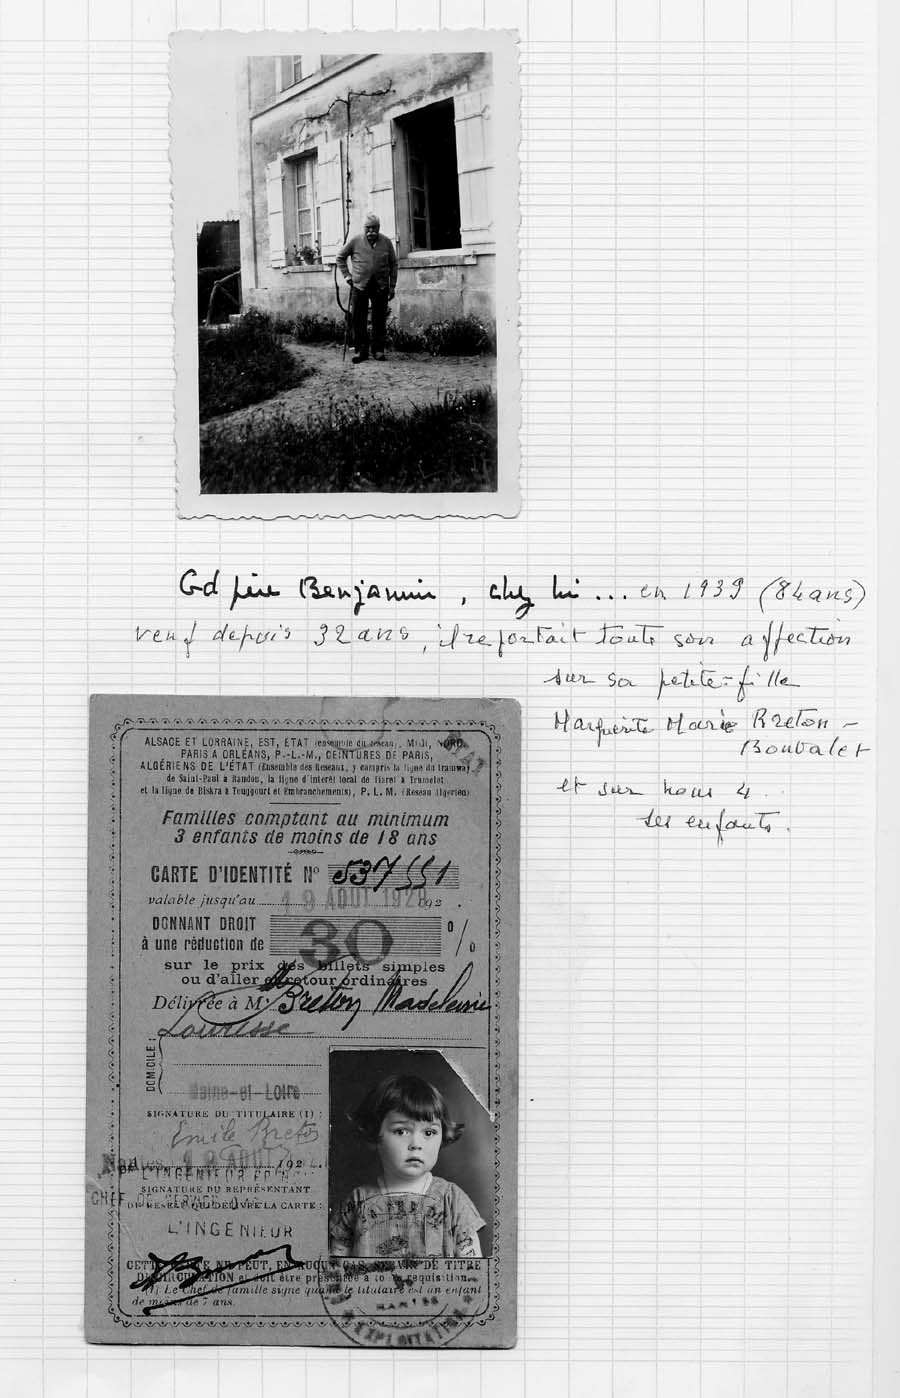 Gd père Benjamin, chez lui... en 1939 (84 ans)
veuf depuis 32 ans, il reportait toute son affection
sur sa petite-fille
Marguerite Marie Breton-
Boubalet
et sur nous 4
ses enfants.
ALSACE ET LORRAINE, EST, ÉTAT (ensemble du réseau), MIDI, NORD,
PARIS A ORLÉANS, P.-L.-M., CEINTURES DE PARIS,
ALGÉRIENS DE L'ÉTAT (Ensemble des Réseaux, y compris la ligne du tramway
de Saint-Paul à Randon, la ligne d'intérêt local de Tiaret à Trumelet
et la ligne de Biskra à Touggourt et Embranchements), P. L. M. (Réseau Algérien)
Familles comptant au minimum
3 enfants de moins de 18 ans
CARTE D'IDENTITÉ Nº 537551
valable jusqu'au 19 AOUT 192 192 .
DONNANT DROIT
à une réduction de 30 %
sur le prix des billets simples
ou d'aller et retour ordinaires
Délivrée à M Breton Madeleine
Louresse
DOMICILE :
Maine-et-Loire
SIGNATURE DU TITULAIRE (1) :
Emile Breton
Nantes 19 AOUT 192
L'INGÉNIEUR
SIGNATURE DU REPRÉSENTANT
CHEF DE
DU RÉSEAU QUI DÉLIVRE LA CARTE :
L'INGÉNIEUR
CETTE CARTE NE PEUT, EN AUCUN CAS, SERVIR DE TITRE
DE CIRCULATION et doit être présentée à toute réquisition.
(1) Le Chef de famille signe quand le titulaire est un enfant
de moins de 7 ans.
NANTES
EXPLOITATION